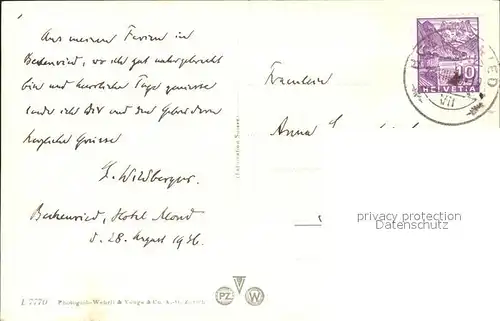 Aus meinen Ferien in
Beckenried, wo ich gut untergebracht
bin und herrliche Tage geniesse
sende ich Dir und den Gebrüdern
herzliche Grüsse
Wildberger.
Beckenried, Hotel Mond
d. 28. August 1936.
Fräulein
Anna
10
HELVETIA
VII
privacy protection
Datenschutz
PZ W
Photographie Wehrli &